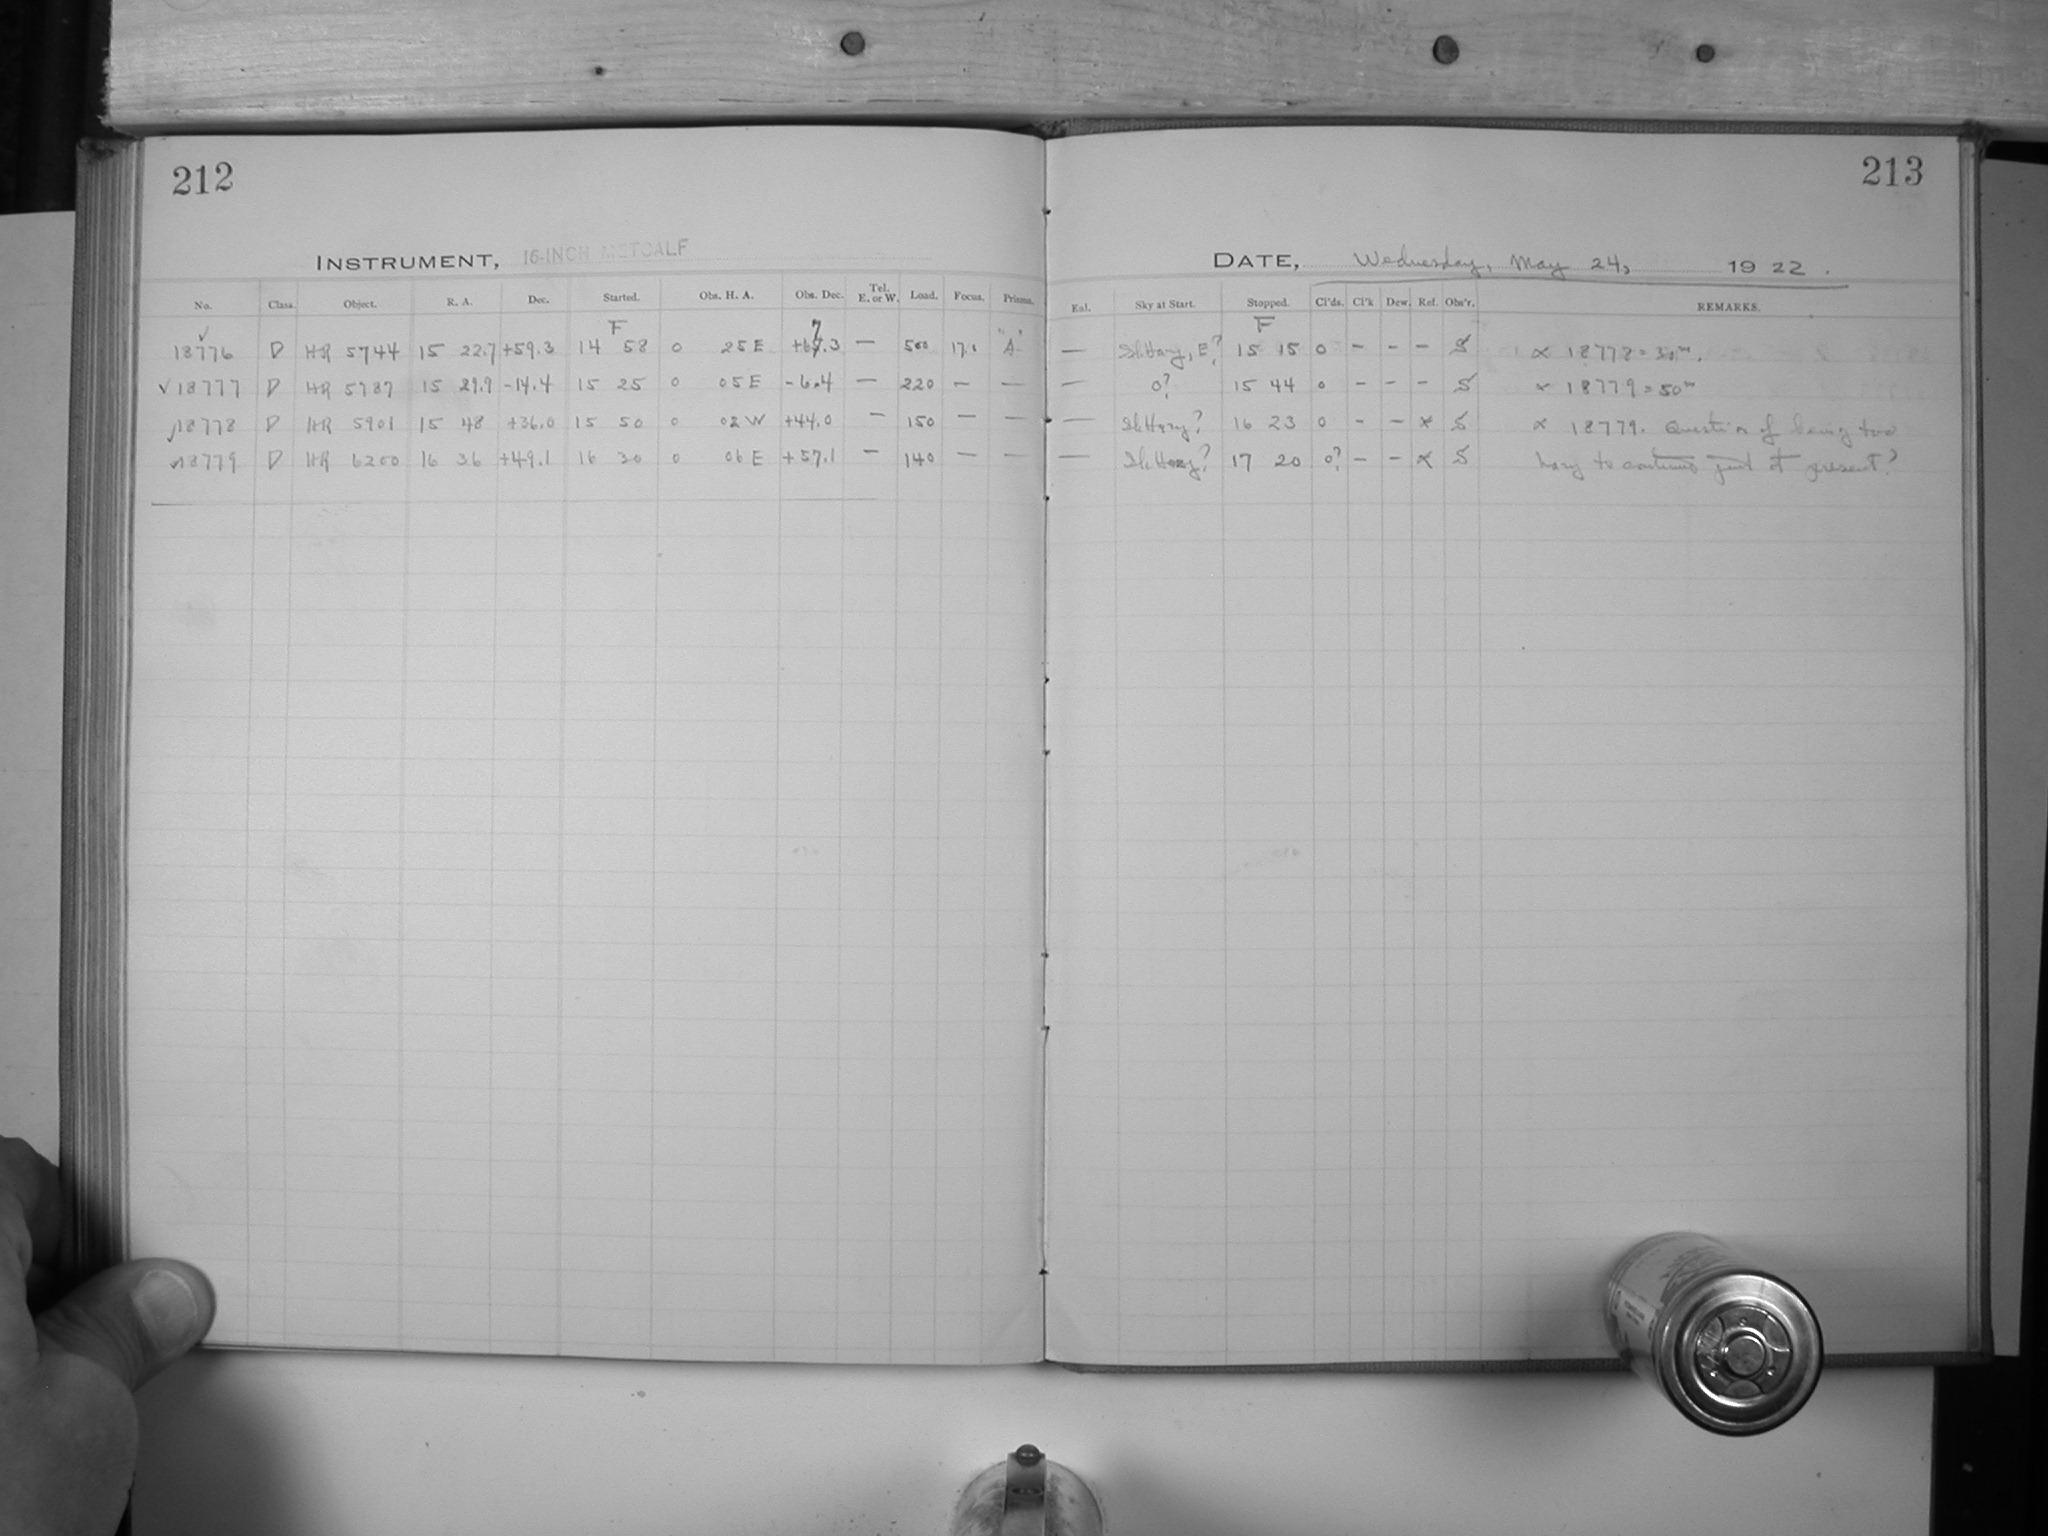 212
213
INSTRUMENT, 16-INCH METCALF
DATE, Wednesday, May 24, 1922.
No. Class. Object. R. A. Dec. Started. Obs. H. A. Obs. Dec. Tel. E. or W. Load. Focus. Prisms. Eal. Sky at Start. Stopped. Cl'ds. Cl'k Dew. Ref. Obs'r. REMARKS.
F 7 F
✓
18776 D HR 5744 15 22.7 +59.3 14 58 0 25 E +67.3 — 500 17.1 "A" — Sl. Hazy, E? 15 15 0 - - - S × 18778 = 50m.
✓ 18777 D HR 5787 15 29.9 -14.4 15 25 0 05 E -6.4 — 220 — — — 0? 15 44 0 - - - S × 18779 = 50m
✓ 18778 D HR 5901 15 48 +36.0 15 50 0 02 W +44.0 — 150 — — — Sl. Hazy? 16 23 0 - - × S × 18779. Question of being too
✓ 18779 D HR 6200 16 36 +49.1 16 30 0 06 E +57.1 — 140 — — — Sl. Hazy? 17 20 0? - - × S hazy to continue just at present?